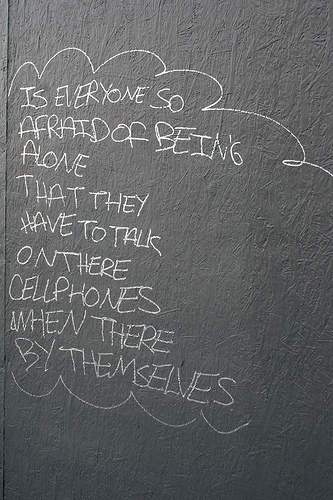 IS EVERYONE SO
AFRAID OF BEING
ALONE
THAT THEY
HAVE TO TALK
ON THERE
CELLPHONES
WHEN THERE
BY THEMSELVES